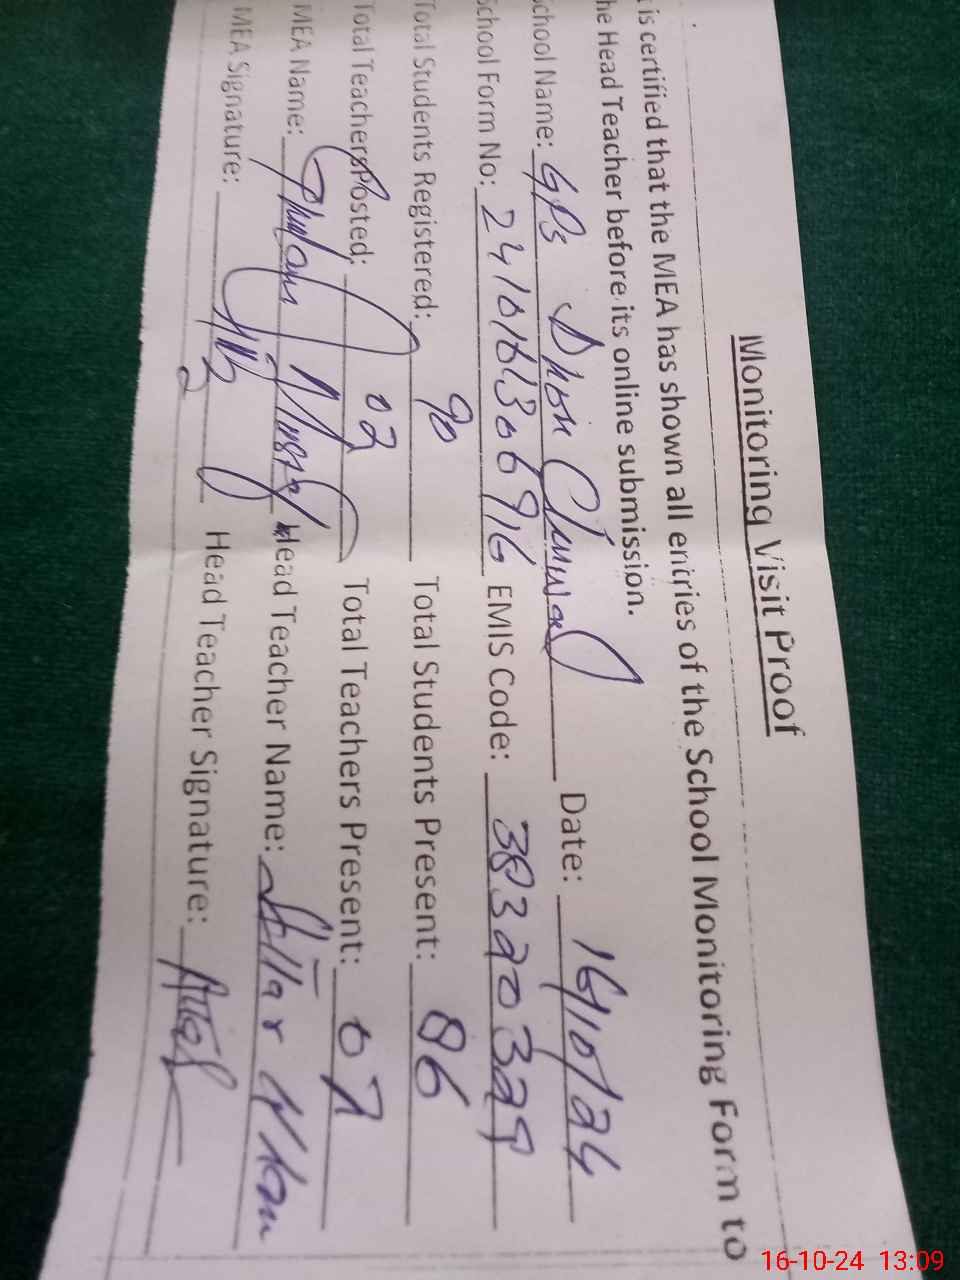 Monitoring Visit Proof
is certified that the MEA has shown all entries of the School Monitoring Form to
he Head Teacher before its online submission.
School Name: GPS Dhok Date: 16/10/24
School Form No: 2410161306916 EMIS Code: 38320329
Total Students Registered: 90 Total Students Present: 86
Total Teachers Posted: 02 Total Teachers Present: 02
MEA Name: Ghulam Head Teacher Name: Khan
MEA Signature: Head Teacher Signature:
16-10-24 13:09